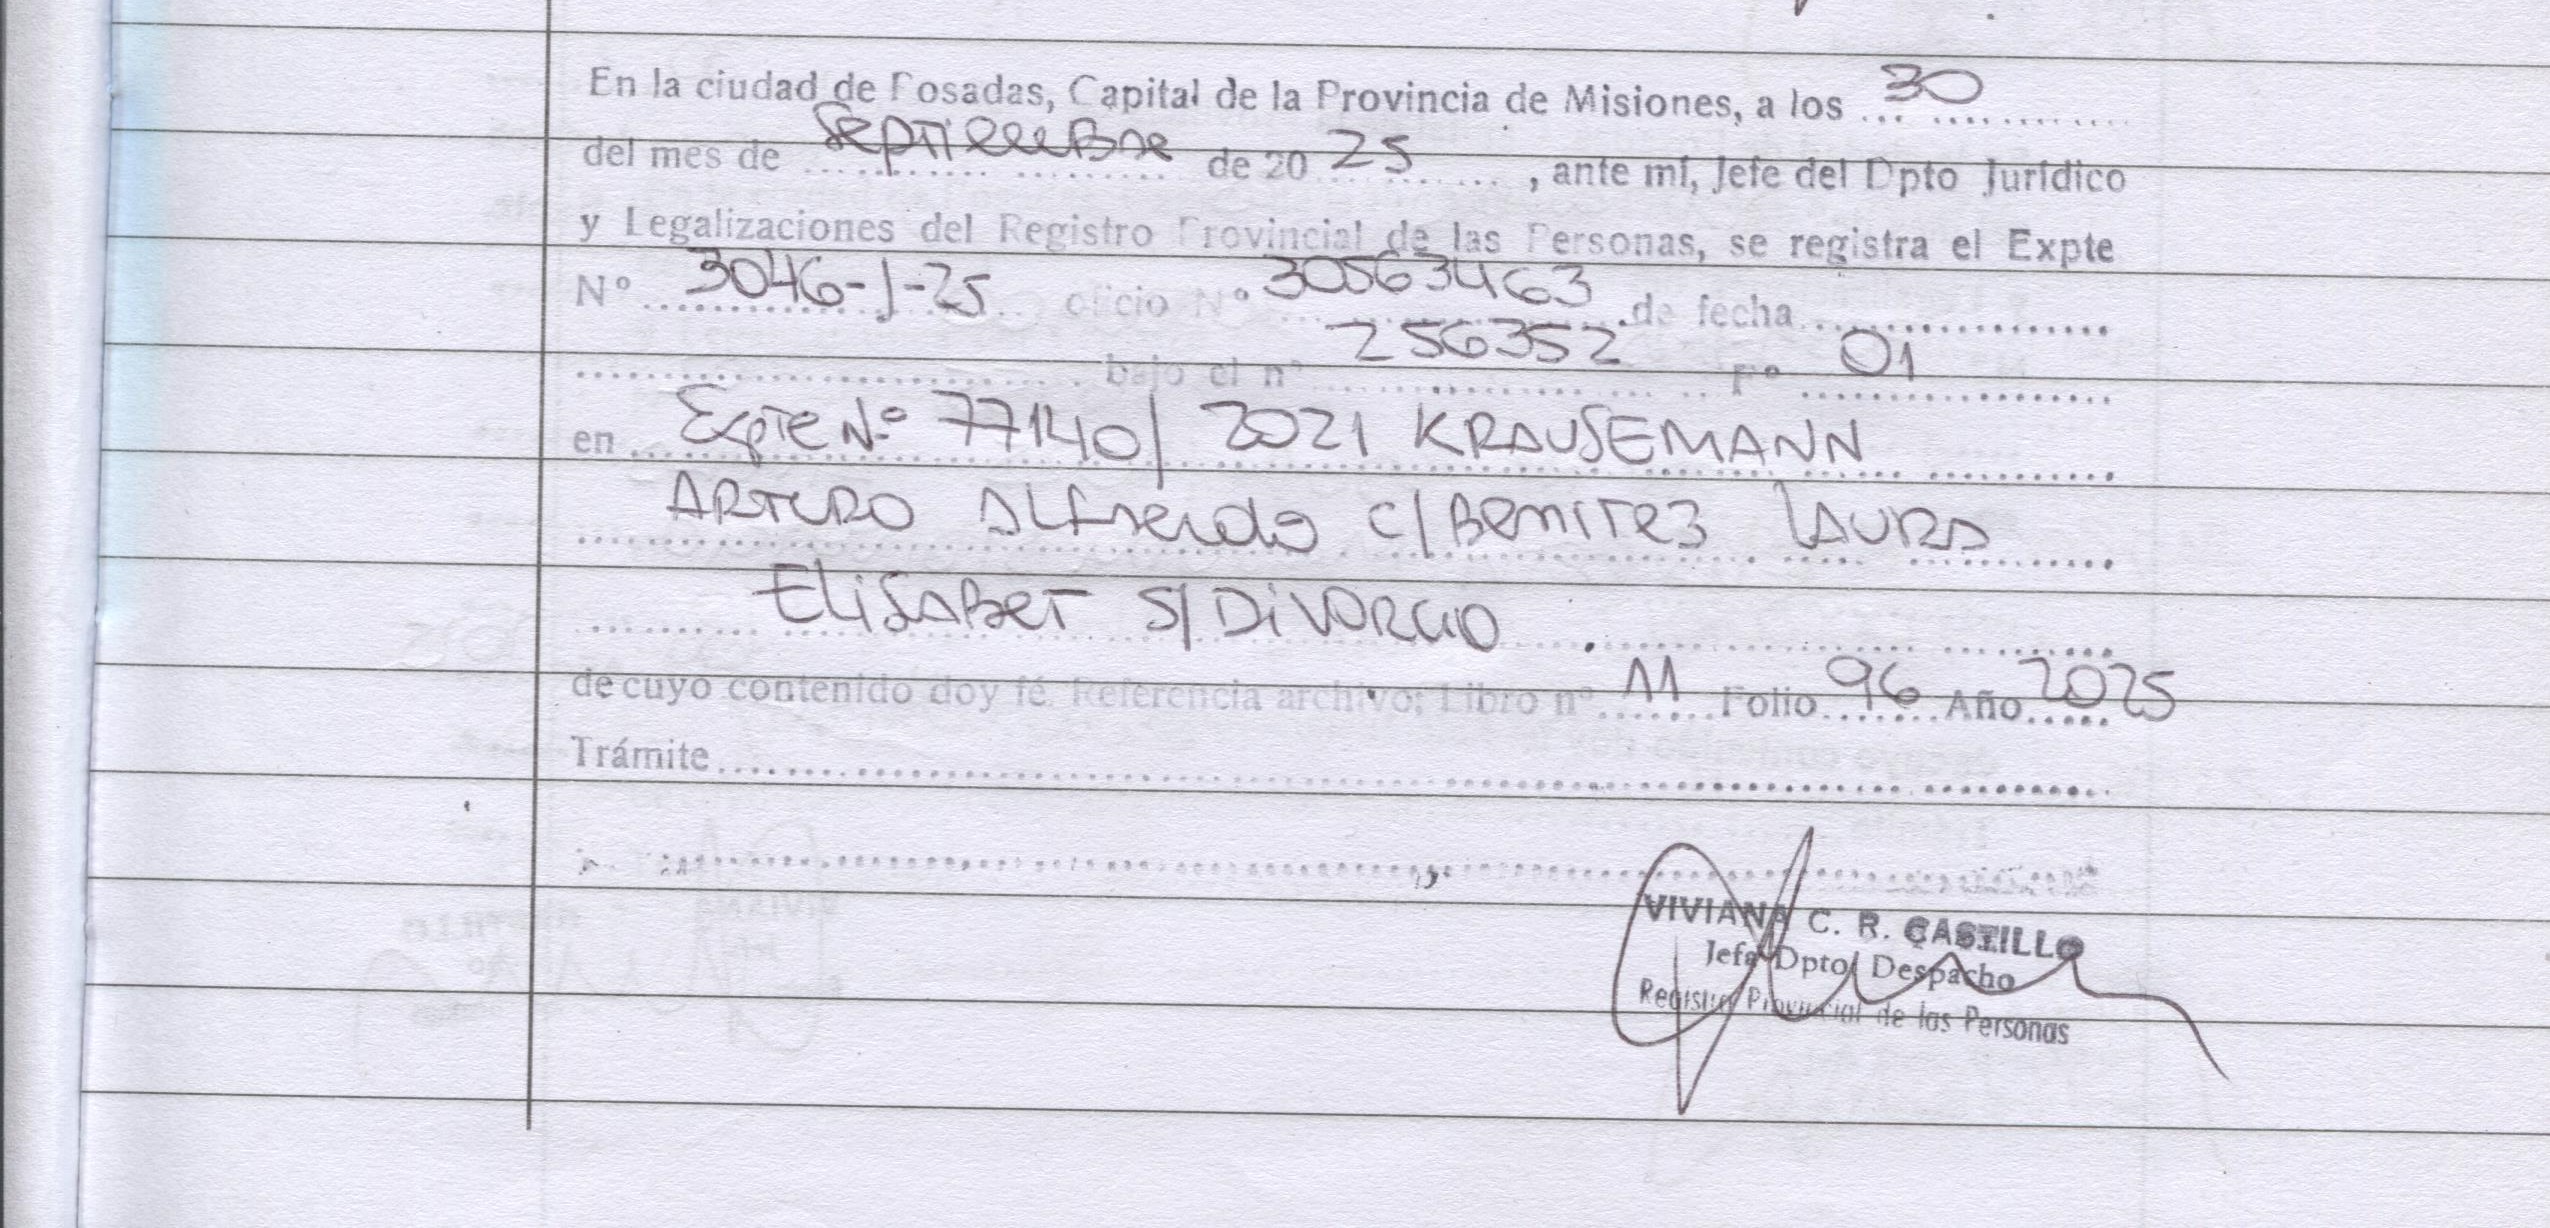 En la ciudad de Posadas, Capital de la Provincia de Misiones, a los 30
del mes de Septiembre de 20 25 , ante mí, Jefe del Dpto Jurídico
y Legalizaciones del Registro Provincial de las Personas, se registra el Expte
Nº 3046-J-25 oficio Nº 30563463 de fecha
bajo el nº 256352 Fº 01
en Expte Nº 77140/2021 KRAUSEMANN
ARTURO ALFREDO C/BENITEZ LAURA
ELISABET S/DIVORCIO
de cuyo contenido doy fé. Referencia archivo: Libro nº 11 Folio 96 Año 2025
Trámite
VIVIANA C. R. CASTILLO
Jefa Dpto Despacho
Registro Provincial de las Personas